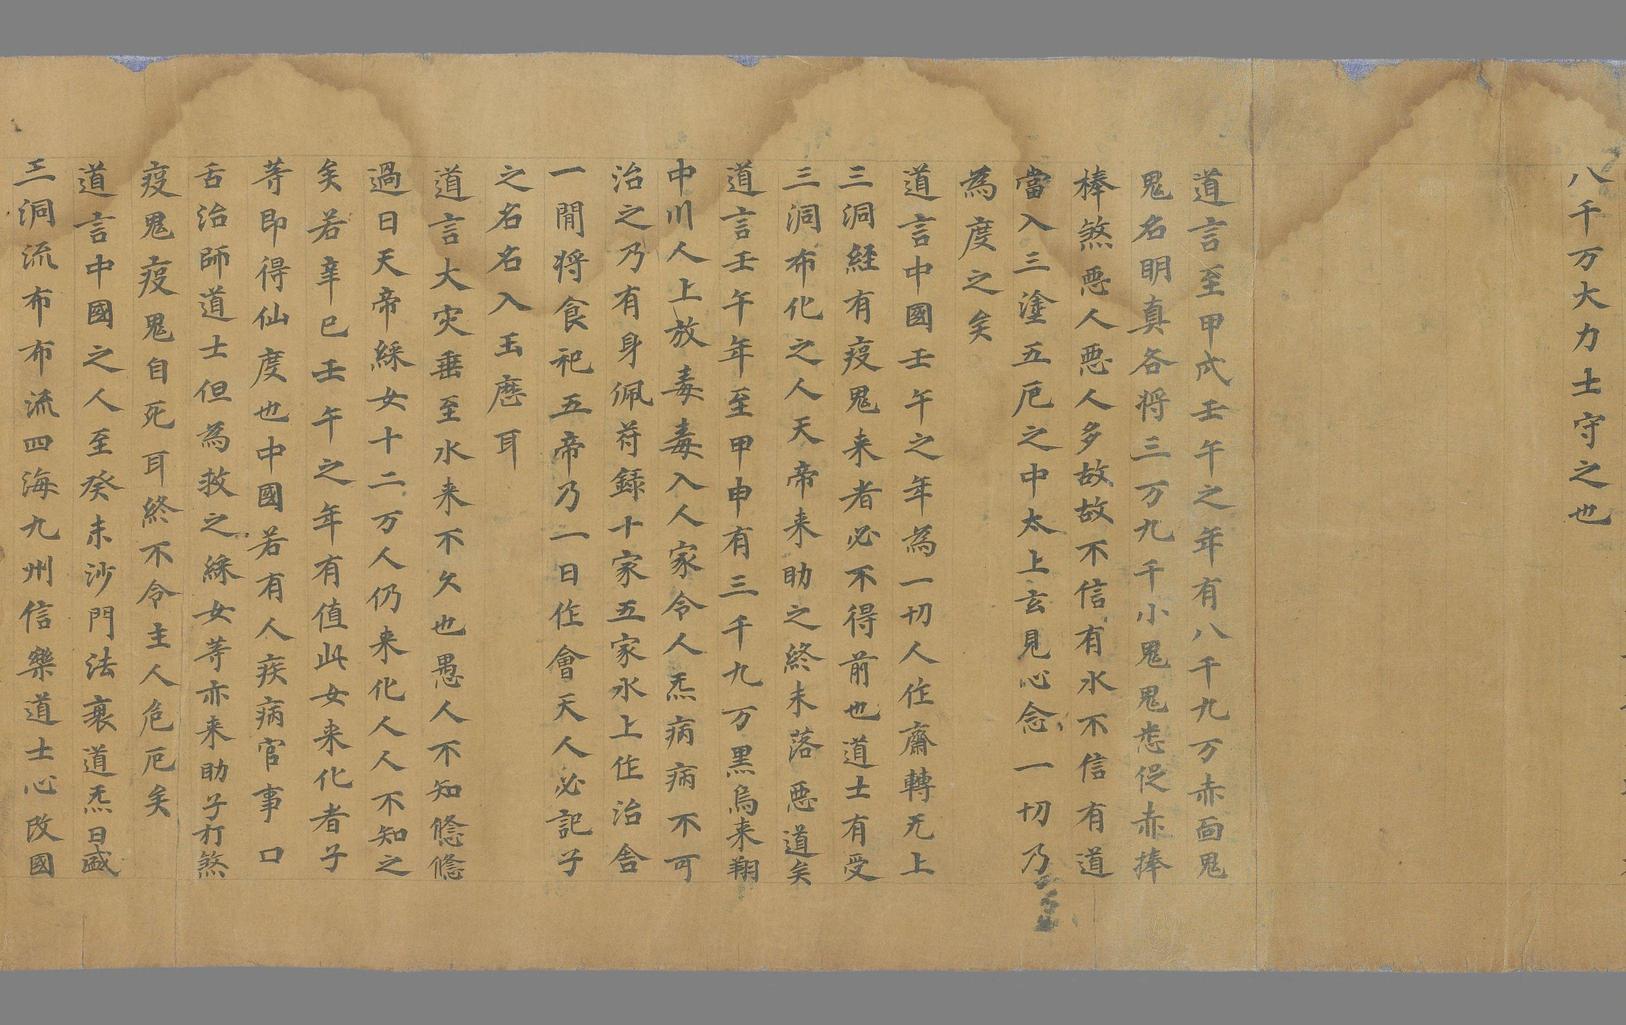 八千万大力士守之也
道言至甲戌壬午之年有八千九万赤面鬼
鬼名明真各将三万九千小鬼鬼悉促赤捧
棒煞惡人惡人多故故不信有水不信有道
當入三塗五厄之中太上玄見心念一切乃
為度之矣
道言中國壬午之年為一切人作齋轉无上
三洞經有疫鬼来者必不得前也道士有受
三洞布化之人天帝来助之終未落惡道矣
道言壬午年至甲申有三千九万黒烏来翔
中川人上放毒毒入人家令人炁病病不可
治之乃有身佩苻錄十家五家水上作治舍
一間将食祀五帝乃一日作會天人必記子
之名名入玉歷耳
道言大灾垂至水来不久也愚人不知悠悠
過日天帝綵女十二万人仍来化人人不知之
矣若辛巳壬午之年有值此女来化者子
等即得仙度也中國若有人疾病官事口
舌治師道士但為救之綵女等亦来助子打煞
疫鬼疫鬼自死耳終不令主人危厄矣
道言中國之人至癸未沙門法衰道炁日盛
三洞流布布流四海九州信樂道士心改國